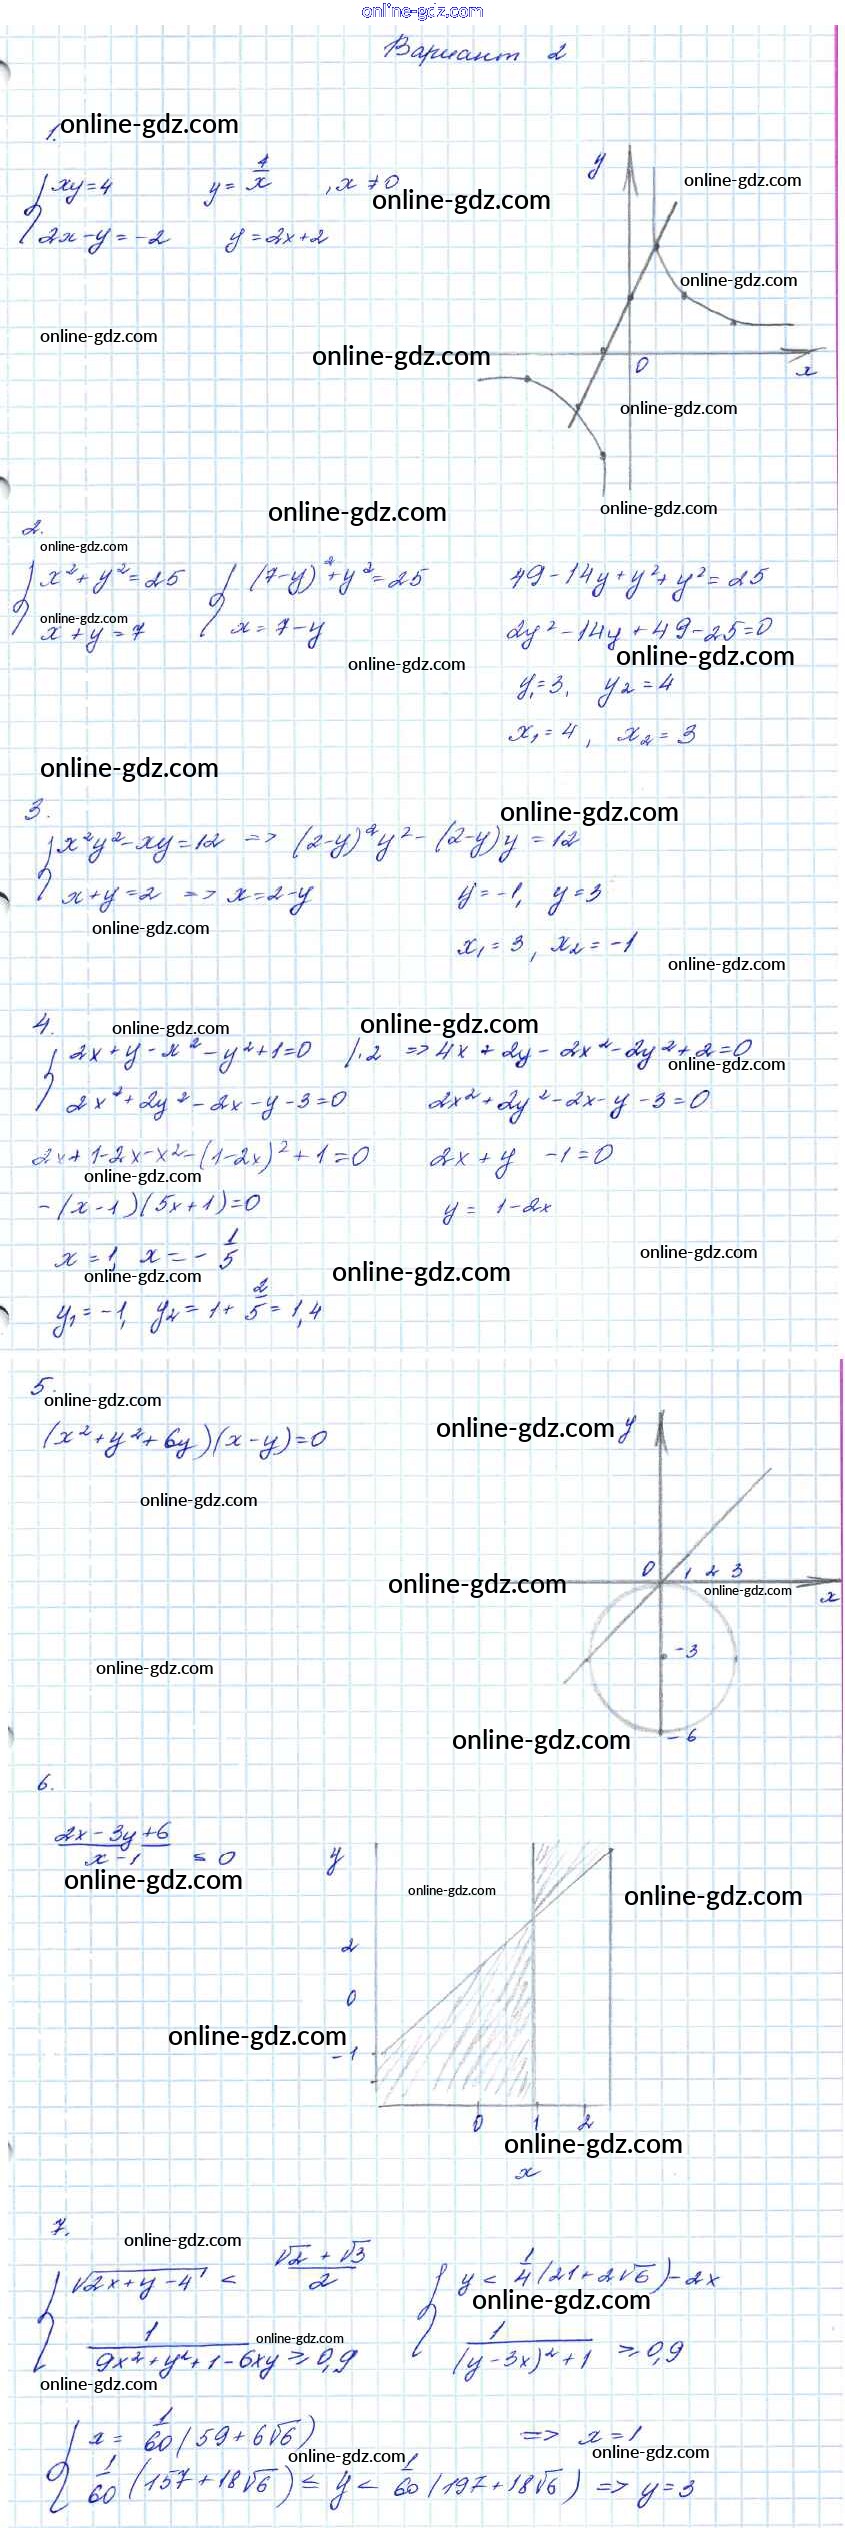 online-gdz.com
Вариант 2
1. online-gdz.com
{ xy=4     y = 4/x , x ≠ 0
2x-y=-2     y=2x+2
online-gdz.com
y
online-gdz.com
online-gdz.com
online-gdz.com
online-gdz.com
0 x
online-gdz.com
online-gdz.com
online-gdz.com
2.
online-gdz.com
{ x²+y²=25     { (7-y)²+y²=25     49-14y+y²+y²=25
online-gdz.com
x+y=7     x=7-y     2y²-14y+49-25=0
online-gdz.com
online-gdz.com
y₁=3, y₂=4
x₁=4, x₂=3
online-gdz.com
3.
online-gdz.com
{ x²y²-xy=12 => (2-y)²y²-(2-y)y=12
x+y=2 => x=2-y     y=-1, y=3
online-gdz.com
x₁=3, x₂=-1
online-gdz.com
4. online-gdz.com
online-gdz.com
{ 2x+y-x²-y²+1=0 |·2 => 4x+2y-2x²-2y²+2=0
online-gdz.com
2x²+2y²-2x-y-3=0     2x²+2y²-2x-y-3=0
2x+1-2x-x²-(1-2x)²+1=0     2x+y-1=0
online-gdz.com
-(x-1)(5x+1)=0     y=1-2x
x=1, x=-1/5
online-gdz.com
online-gdz.com
online-gdz.com
y₁=-1, y₂=1+2/5=1,4
5.
online-gdz.com
(x²+y²+6y)(x-y)=0
online-gdz.com y
online-gdz.com
0 1 2 3
online-gdz.com
online-gdz.com
x
-3
online-gdz.com
online-gdz.com
-6
6.
(2x-3y+6)/(x-1) ≤ 0
y
online-gdz.com
online-gdz.com
online-gdz.com
2
0
online-gdz.com
-1
0 1 2
online-gdz.com
x
7.
online-gdz.com
{ √(2x+y-4) < (√2+√3)/2     { y < 1/4(21+2√6)-2x
online-gdz.com
1/(9x²+y²+1-6xy) ≥ 0,9     1/((y-3x)²+1) ≥ 0,9
online-gdz.com
online-gdz.com
{ x = 1/60(59+6√6)     => x=1
online-gdz.com
online-gdz.com
1/60(157+18√6) ≤ y < 1/60(197+18√6) => y=3